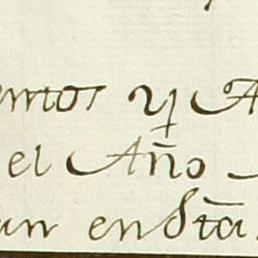 entos y A
el Año
an en Sta